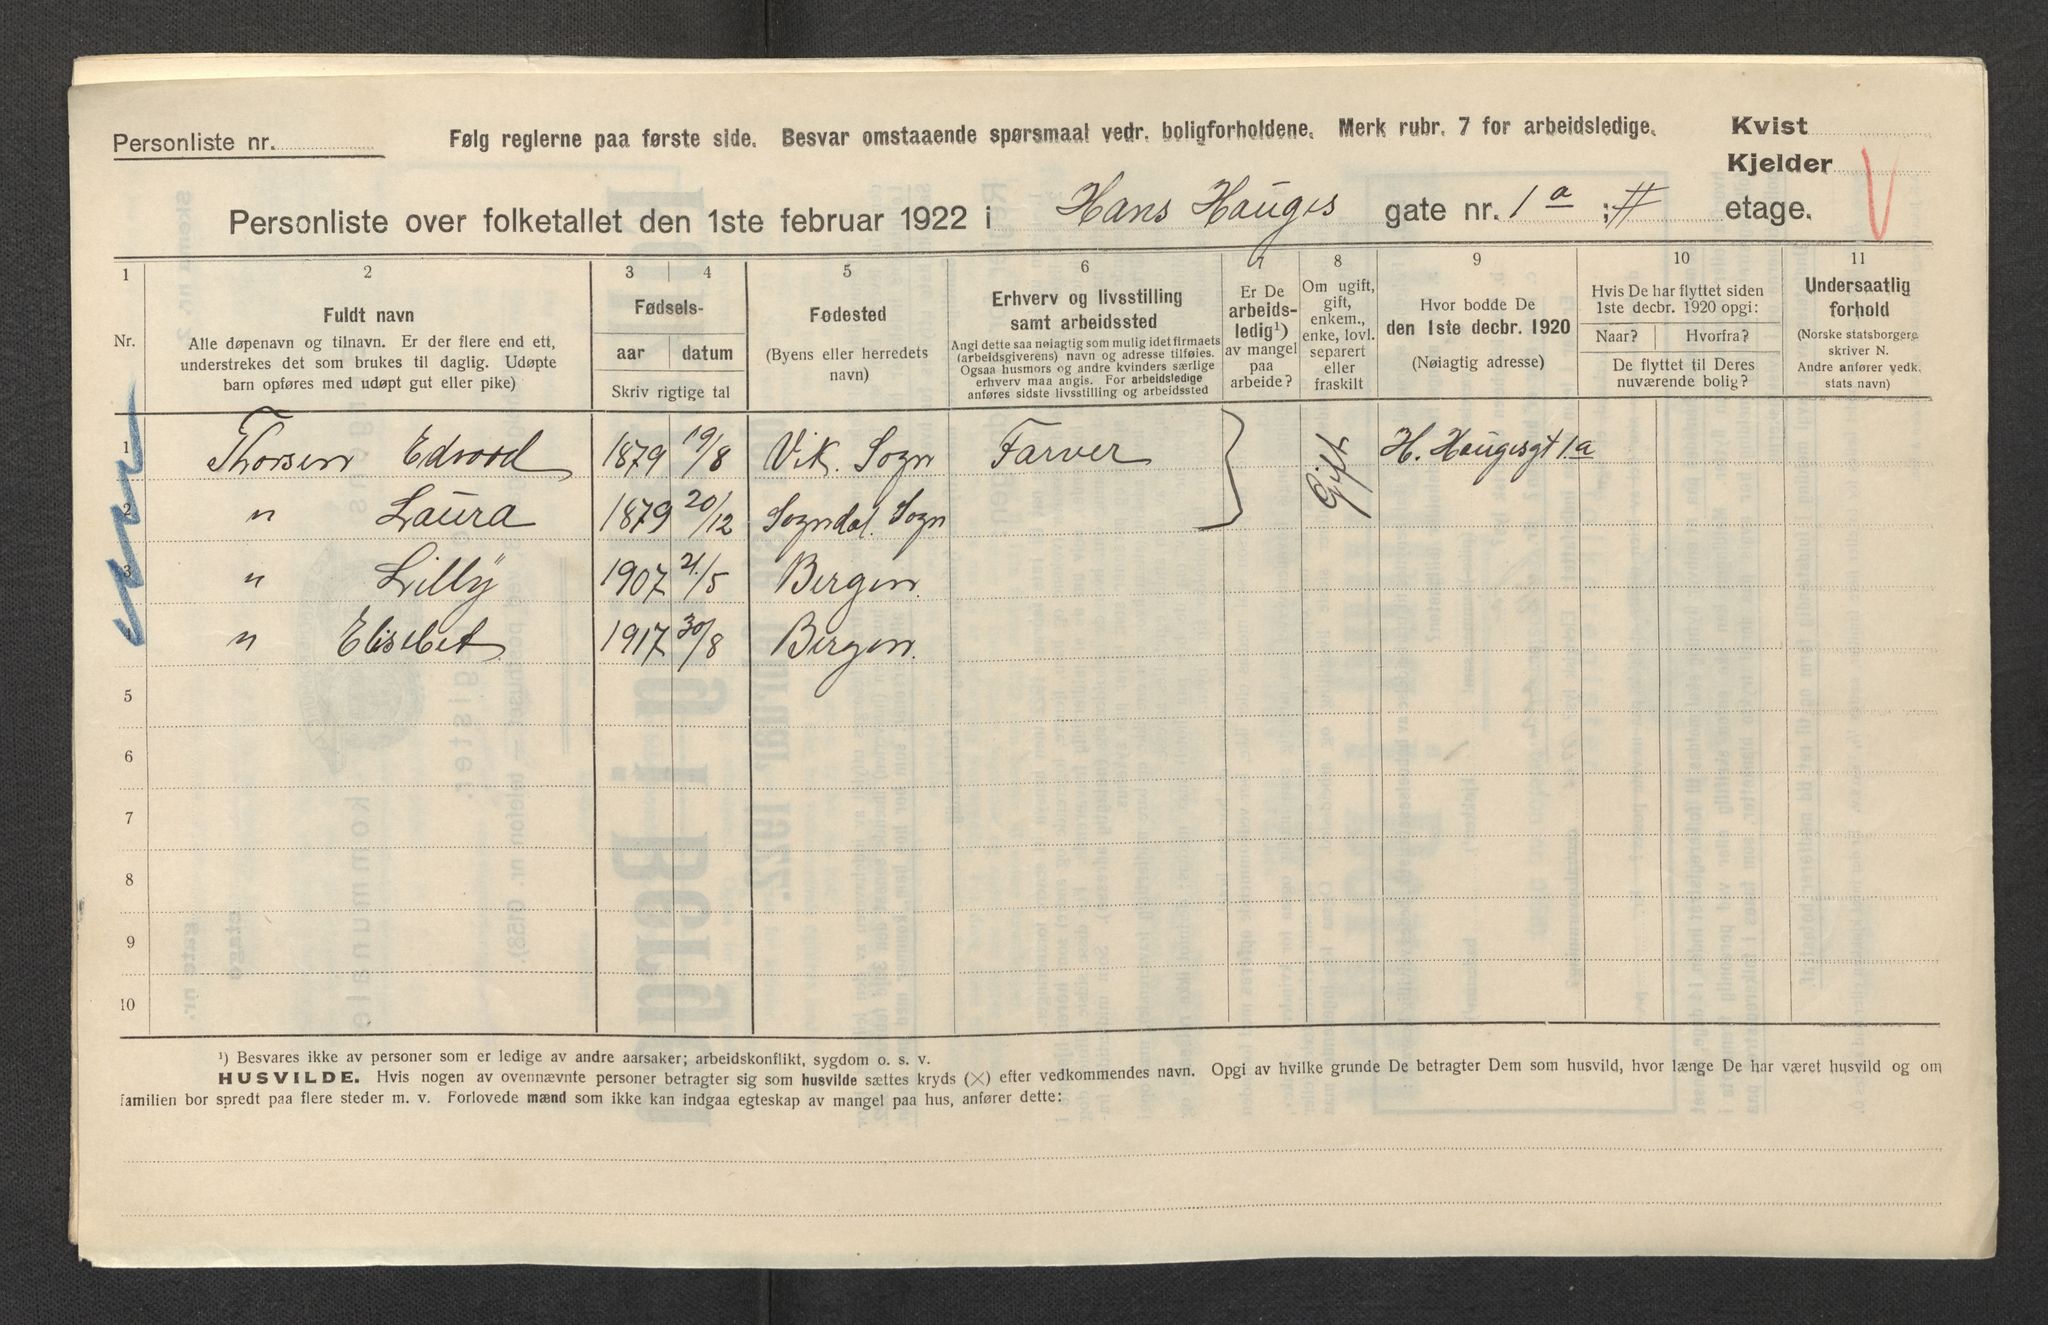 Personliste nr.
Følg reglerne paa første side. Besvar omstaaende spørsmaal vedr. boligforholdene. Merk rubr. 7 for arbeidsledige.
Kvist
Kjelder
Personliste over folketallet den 1ste februar 1922 i Hans Hauges gate nr. 1 a ; II etage.
1 2 3 4 5 6 7 8 9 10 11
Nr.
Fuldt navn
Alle døpenavn og tilnavn. Er der flere end ett,
understrekes det som brukes til daglig. Udøpte
barn opføres med udøpt gut eller pike)
Fødsels-
aar datum
Skriv rigtige tal
Fødested
(Byens eller herredets
navn)
Erhverv og livsstilling
samt arbeidssted
Angi dette saa nøiagtig som mulig idet firmaets
(arbeidsgiverens) navn og adresse tilføies.
Ogsaa husmors og andre kvinders særlige
erhverv maa angis. For arbeidsledige
anføres sidste livsstilling og arbeidssted
Er De
arbeids-
ledig¹)
av mangel
paa
arbeide?
Om ugift,
gift,
enkem.,
enke, lovl.
separert
eller
fraskilt
Hvor bodde De
den 1ste decbr. 1920
(Nøiagtig adresse)
Hvis De har flyttet siden
1ste decbr. 1920 opgi:
Naar? Hvorfra?
De flyttet til Deres
nuværende bolig?
Undersaatlig
forhold
(Norske statsborgere
skriver N.
Andre anfører vedk.
stats navn)
1 Thorsen Edvard 1879 19/8 Vik. Sogn Farver Gift H. Haugesgt 1a
2 " Laura 1879 20/12 Sogndal. Sogn
3 " Lilly 1907 21/5 Bergen.
4 " Elisebet 1917 30/8 Bergen.
5
6
7
8
9
10
¹) Besvares ikke av personer som er ledige av andre aarsaker; arbeidskonflikt, sygdom o. s. v.
HUSVILDE. Hvis nogen av ovennævnte personer betragter sig som husvilde sættes kryds (×) efter vedkommendes navn. Opgi av hvilke grunde De betragter Dem som husvild, hvor længe De har været husvild og om
familien bor spredt paa flere steder m. v. Forlovede mænd som ikke kan indgaa egteskap av mangel paa hus, anfører dette: